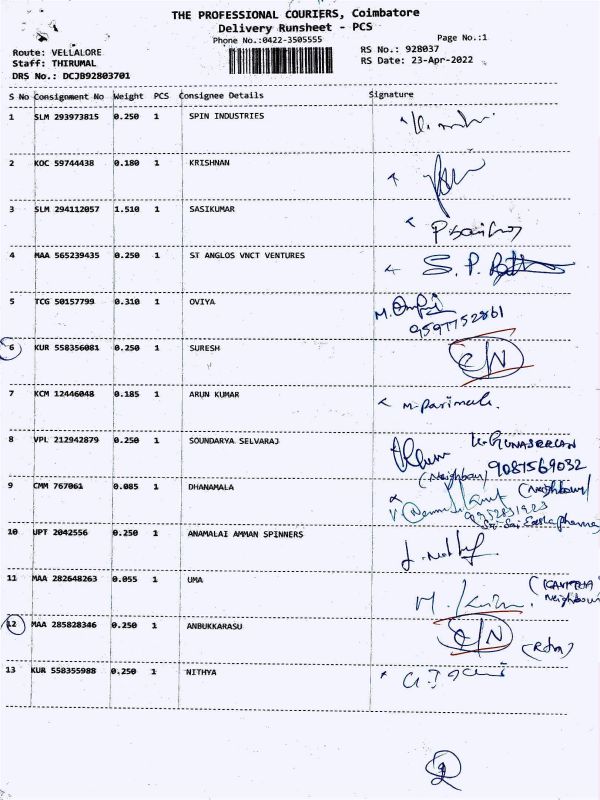 THE PROFESSIONAL COURIERS, Coimbatore
Delivery Runsheet - PCS
Phone No.:0422-3505555
Page No.:1
Route: VELLALORE
RS No.: 928037
Staff: THIRUMAL
RS Date: 23-Apr-2022
DRS No.: DCJB92803701
S No Consignment No Weight PCS Consignee Details Signature
1 SLM 293973815 0.250 1 SPIN INDUSTRIES
2 KOC 59744438 0.180 1 KRISHNAN
3 SLM 294112057 1.510 1 SASIKUMAR
4 MAA 565239435 0.250 1 ST ANGLOS VNCT VENTURES S. P.
5 TCG 50157799 0.310 1 OVIYA M.
9597752861
6 KUR 558356081 0.250 1 SURESH C/N
7 KCM 12446048 0.185 1 ARUN KUMAR M. Parimala
8 VPL 212942879 0.250 1 SOUNDARYA SELVARAJ K. GUNASEELAN
9087569032
(Neighbour)
9 CMM 767061 0.085 1 DHANAMALA (Neighbour)
9952831923
10 UPT 2042556 0.250 1 ANAMALAI AMMAN SPINNERS
11 MAA 282648263 0.055 1 UMA (KAVITHA
Neighbour
12 MAA 285828346 0.250 1 ANBUKKARASU C/N
(Rtn)
13 KUR 558355988 0.250 1 NITHYA